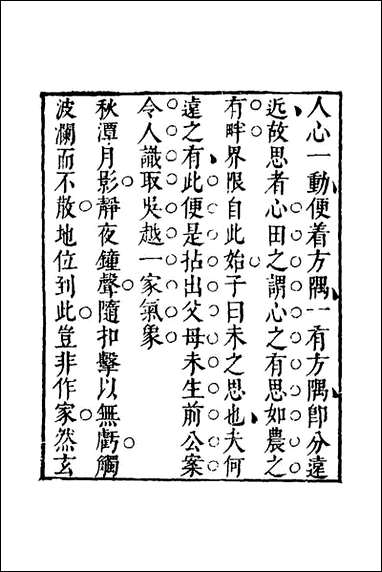 人心一動便着方隅一有方隅卽分遠
近故思者心田之謂心之有思如農之
有畔界限自此始子曰未之思也夫何
遠之有此便是拈出父母未生前公案
令人識取吳越一家氣象
秋潭月影靜夜鐘聲隨扣擊以無虧觸
波瀾而不散地位到此豈非作家然玄